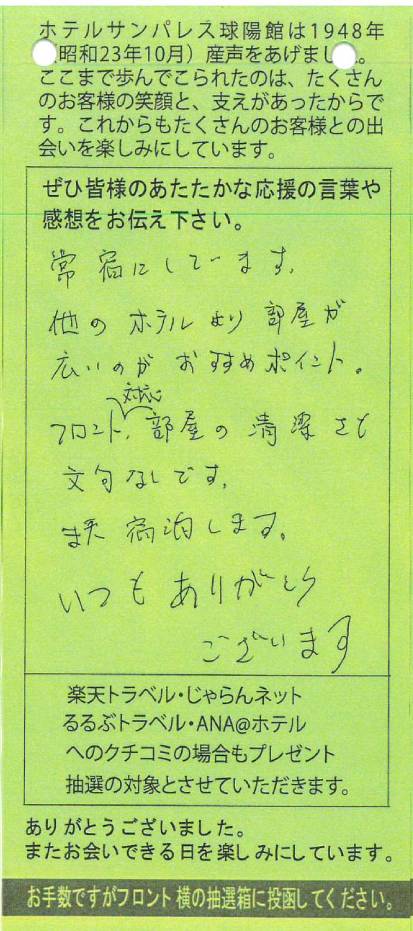 ホテルサンパレス球陽館は1948年
(昭和23年10月)産声をあげました。
ここまで歩んでこられたのは、たくさん
のお客様の笑顔と、支えがあったからで
す。これからもたくさんのお客様との出
会いを楽しみにしています。
ぜひ皆様のあたたかな応援の言葉や
感想をお伝え下さい。
常宿にしています。
他のホテルより部屋が
広いのがおすすめポイント。
対応
フロント、部屋の清潔さも
文句なしです。
また宿泊します。
いつもありがとう
ございます
楽天トラベル・じゃらんネット
るるぶトラベル・ANA@ホテル
へのクチコミの場合もプレゼント
抽選の対象とさせていただきます。
ありがとうございました。
またお会いできる日を楽しみにしています。
お手数ですがフロント横の抽選箱に投函してください。